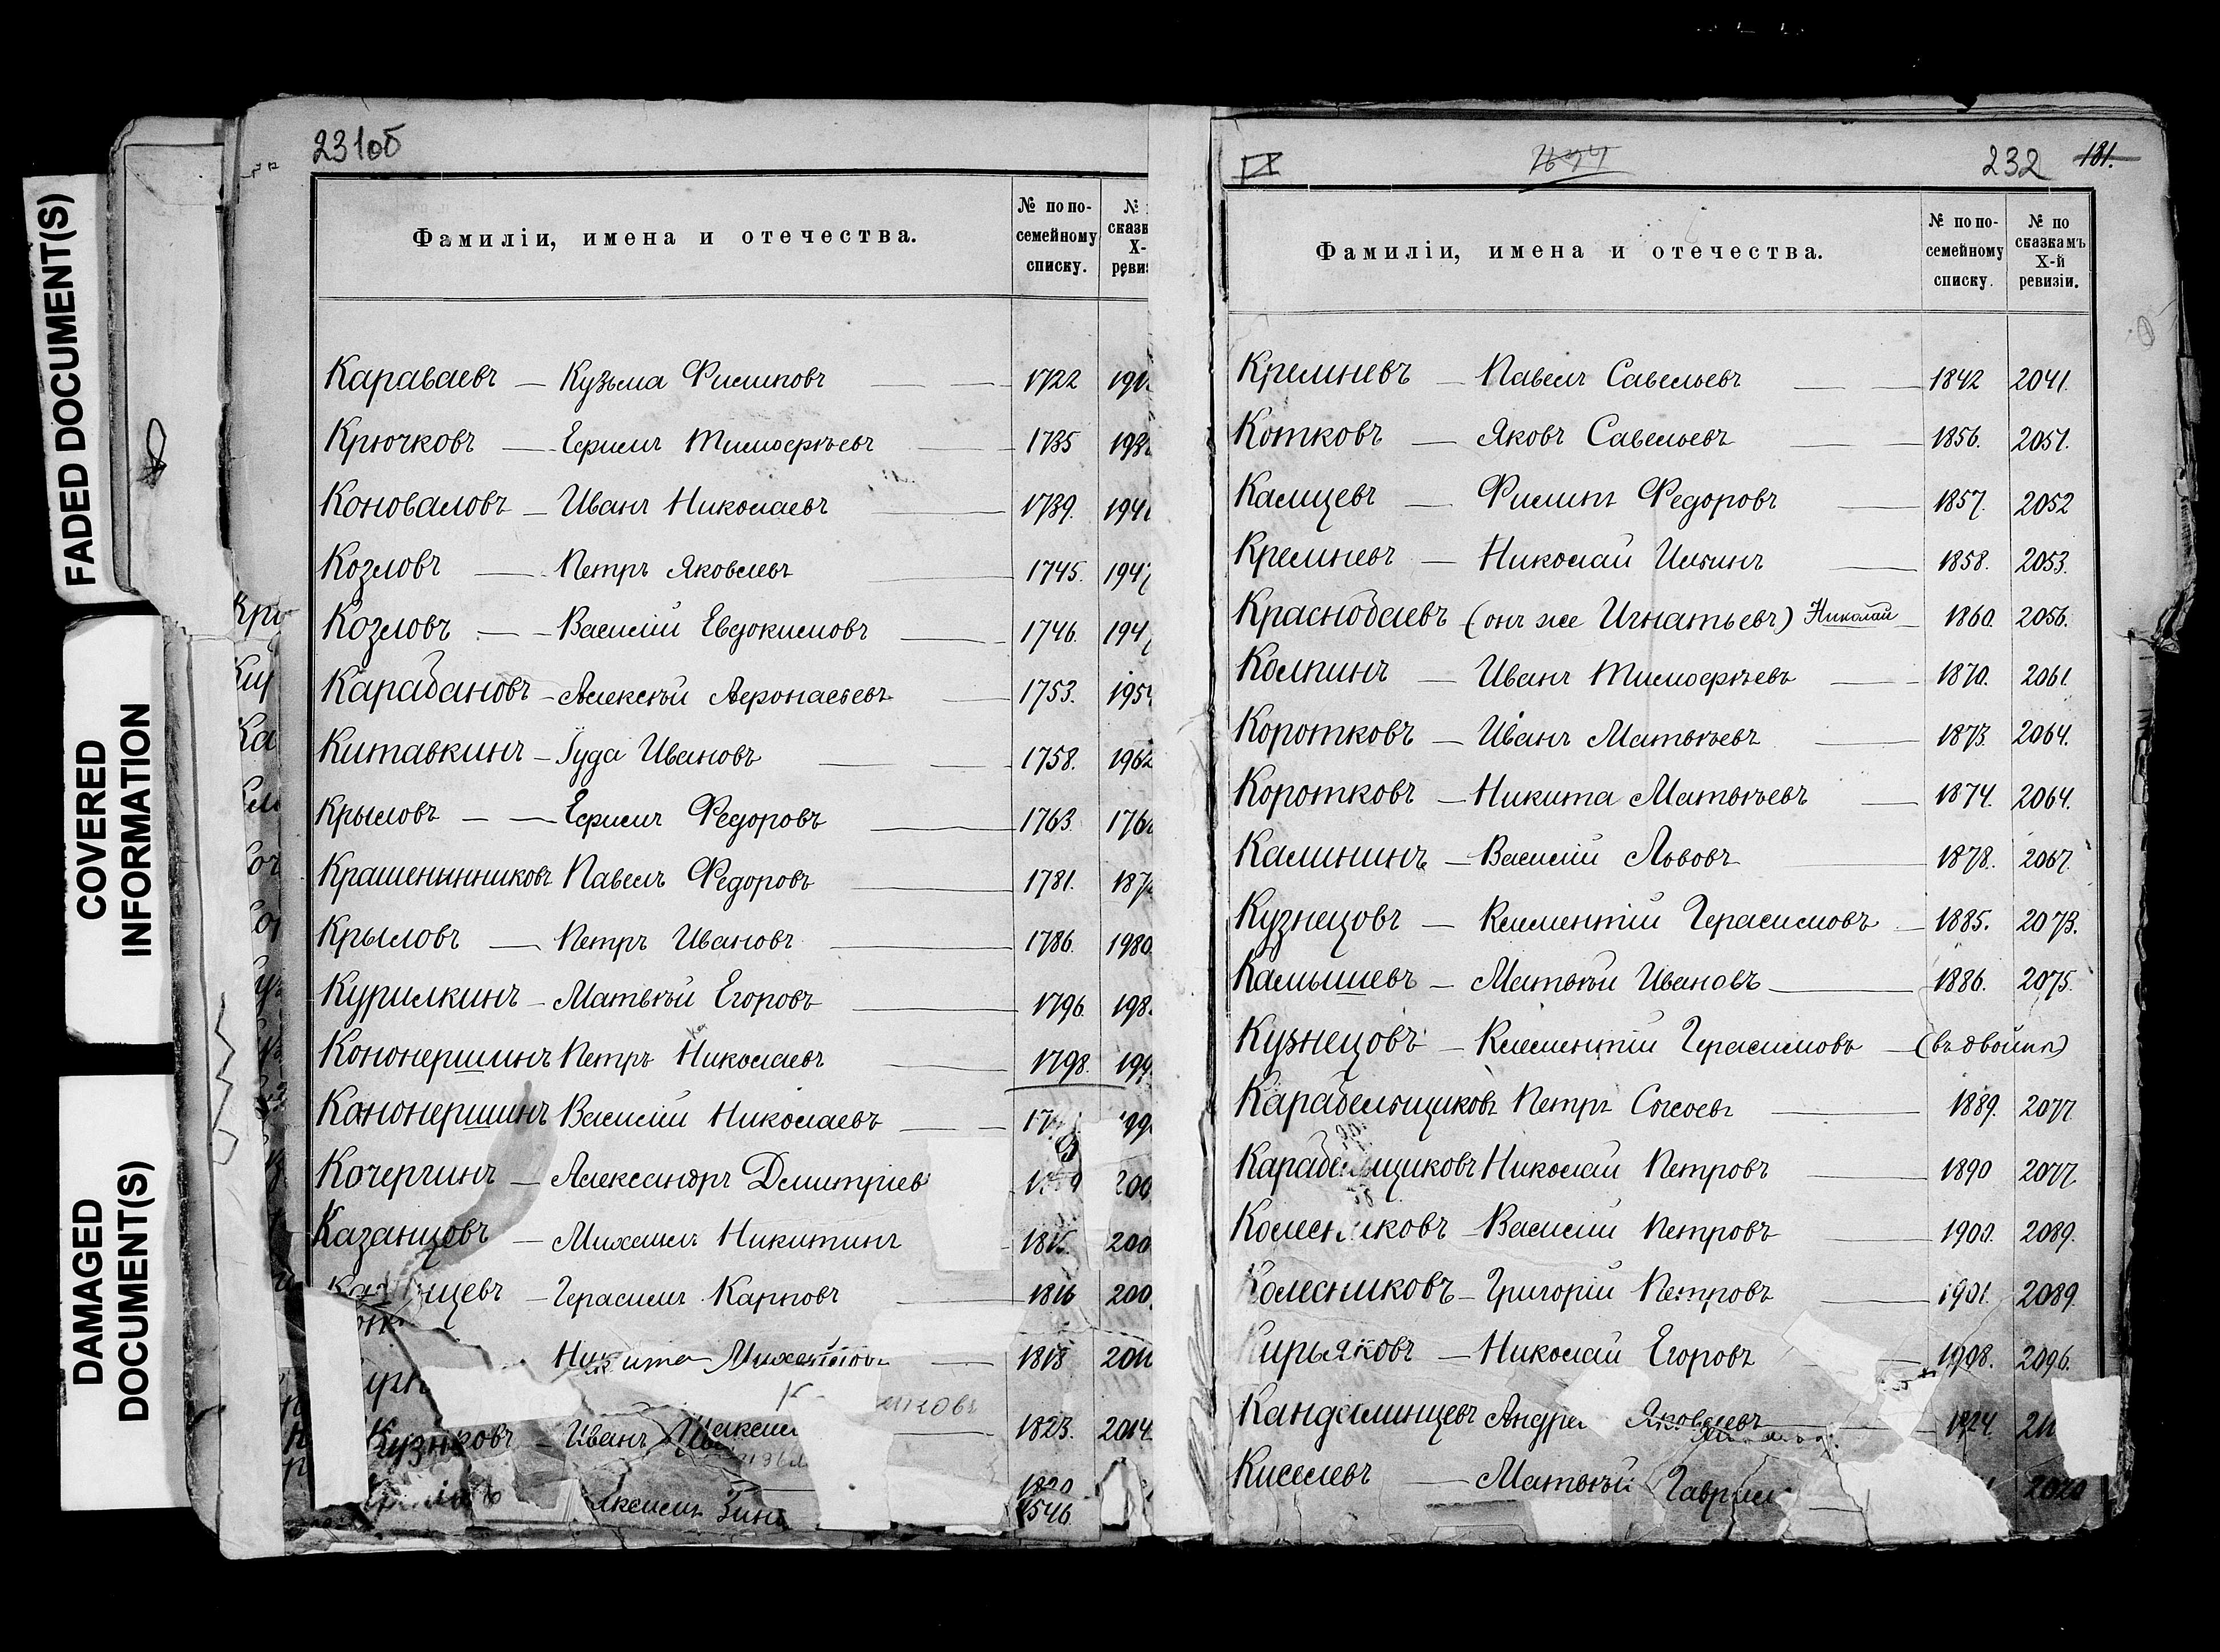 FADED DOCUMENT(S)
COVERED
INFORMATION
DAMAGED
DOCUMENT(S)
231об
Фамиліи, имена и отечества. № по по-семейному списку. № сказк X- ревиз
Караваевъ — Кузьма Филиповъ — — 1722 191
Крючковъ — Ефимъ Тимофѣевъ — 1735 193
Коноваловъ — Иванъ Николаевъ — 1739. 194
Козловъ — Петръ Яковлевъ — 1745. 194
Козловъ — Василій Евдокимовъ — 1746. 194
Карабановъ — Алексѣй Афонасьевъ — 1753. 195
Китавкинъ — Іуда Ивановъ — — 1758. 1962
Крыловъ — — Ефимъ Федоровъ — 1763 176
Крашенынниковъ Павелъ Федоровъ — 1781. 187
Крыловъ — Петръ Ивановъ — 1786. 1980
Курилкинъ — Матвѣй Егоровъ — 1796. 198
Кононершинъ Петръ Николаевъ — 1798. 199
Канонершинъ Василій Николаевъ — — 17 99
Кочергинъ — Александръ Дмитріев 200
Казанцовъ — Михаилъ Никитинъ — 181 200
щевъ — Герасимъ Карповъ — 1816 200
Никита Михайловъ — 1818 201
ковъ — Иванъ — 1823. 2014
1546
IX
232 181.
Фамиліи, имена и отечества. № по по-семейному списку. № по сказкамъ X-й ревизіи.
Кремневъ — Павелъ Савельевъ — — 1842 2041.
Котковъ — Яковъ Савельевъ — — 1856. 2051.
Калицевъ — Филипъ Федоровъ — 1857. 2052
Кремневъ — Николай Ильинъ — 1858. 2053.
Краснобаевъ (онъ же Игнатьевъ) Николай — 1860. 2056.
Колпинъ — Иванъ Тимофѣевъ — 1870. 2061
Коротковъ — Иванъ Матвѣевъ — 1873. 2064.
Коротковъ — Никита Матвѣевъ — 1874. 2064.
Калининъ — Василій Львовъ — 1878. 2067.
Кузнецовъ — Климентій Герасимовъ — 1885. 2073.
Камышевъ — Матвѣй Ивановъ — 1886. 2075.
Кузнецовъ — Климентій Герасимовъ — (въ двойнѣ)
Карабельщиковъ Петръ Сысоевъ — 1889. 2077
Карабе щиковъ Николай Петровъ — 1890 2077
Колесниковъ — Василій Петровъ — 1900. 2089.
Колесниковъ — Григорій Петровъ — 1901. 2089.
Кирьяковъ — Николай Егоровъ — 1908. 2096.
Кандалинцевъ Андре Яковлевъ — 21
Киселевъ — Матвѣй Гаврил — 2020